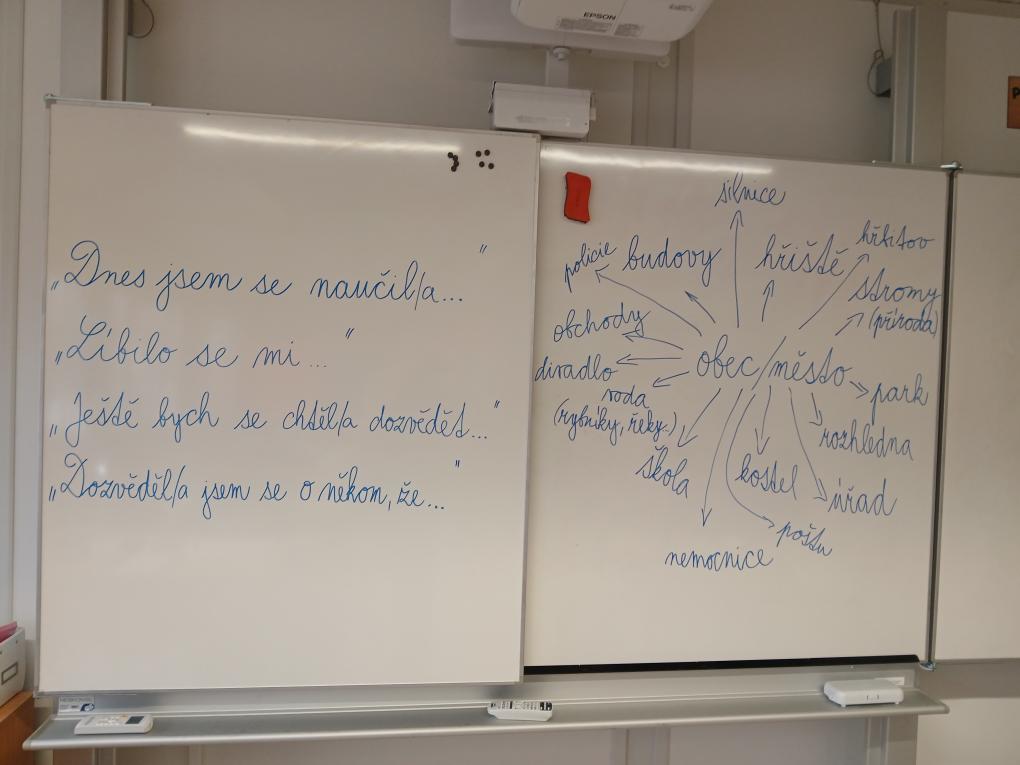 EPSON
„Dnes jsem se naučil/a..."
„Líbilo se mi..."
„Ještě bych se chtěl/a dozvědět..."
„Dozvěděl/a jsem se o někom, že..."
silnice
policie
budovy
hřiště
hřbitov
stromy
(příroda)
obchody
divadlo
obec/město
voda
(rybníky, řeky..)
park
rozhledna
škola
kostel
úřad
pošta
nemocnice